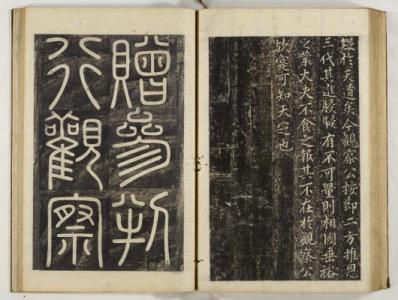 於天道矣今觀察公按節二方推恩
三代其進駸駸有不可量則相國垂裕
之業大夫不食之報其不在於觀察公
歟寔可知天之也
贈參判
行觀察